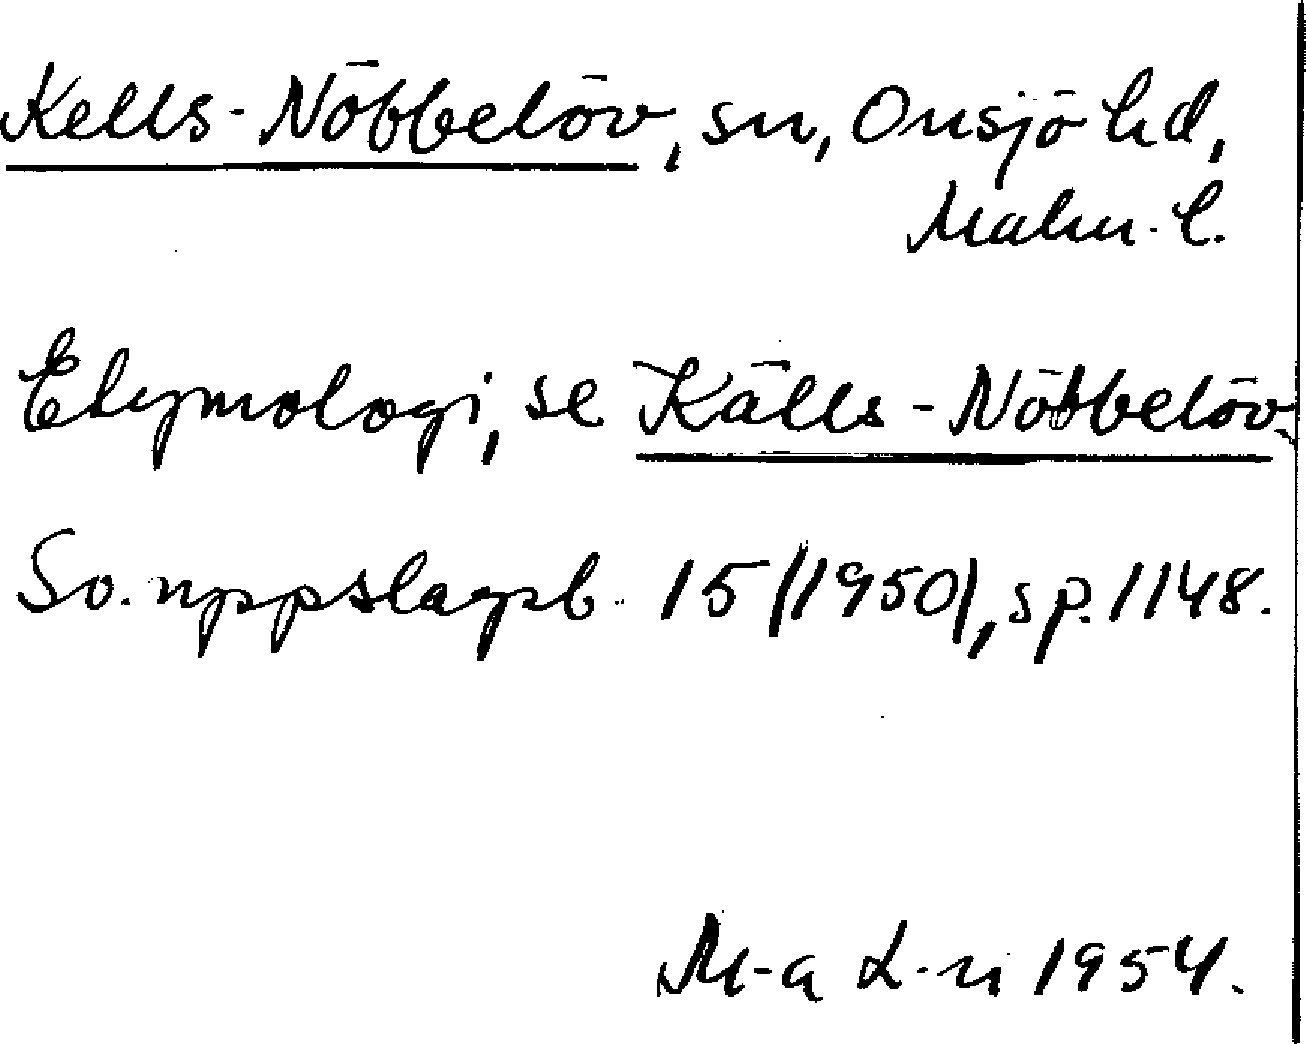 Kells-Nöbbelöv, sn, Onsjö hd,
Malm. l.
Etymologi, se Källs-Nöbbelöv.
Sv. uppslagsb. 15 (1950), sp. 1148.
M-a L-n 1954.